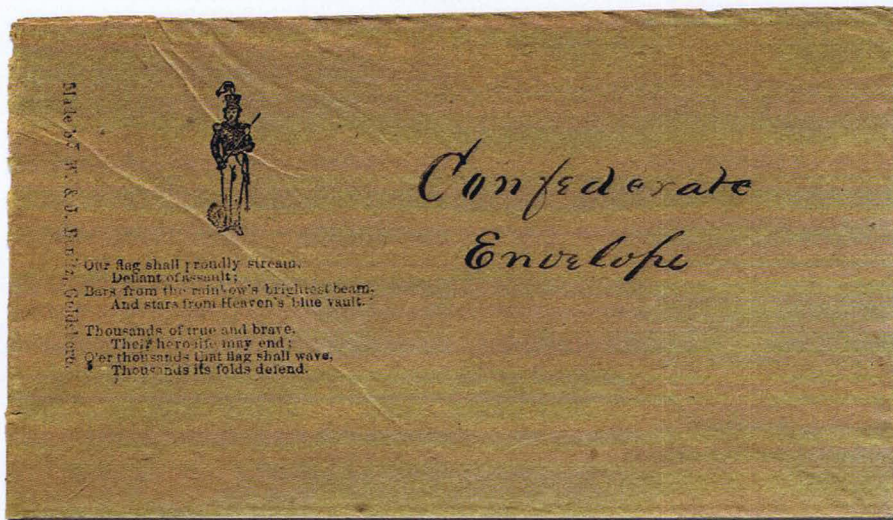 Made by W. & J. Bonitz, Goldsboro.
Our flag shall proudly stream,
Defiant of assault;
Bars from the rainbow's brightest beam,
And stars from Heaven's blue vault.
Thousands of true and brave,
Their hero-life may end;
O'er thousands that flag shall wave,
Thousands its folds defend.
Confederate
Envelope